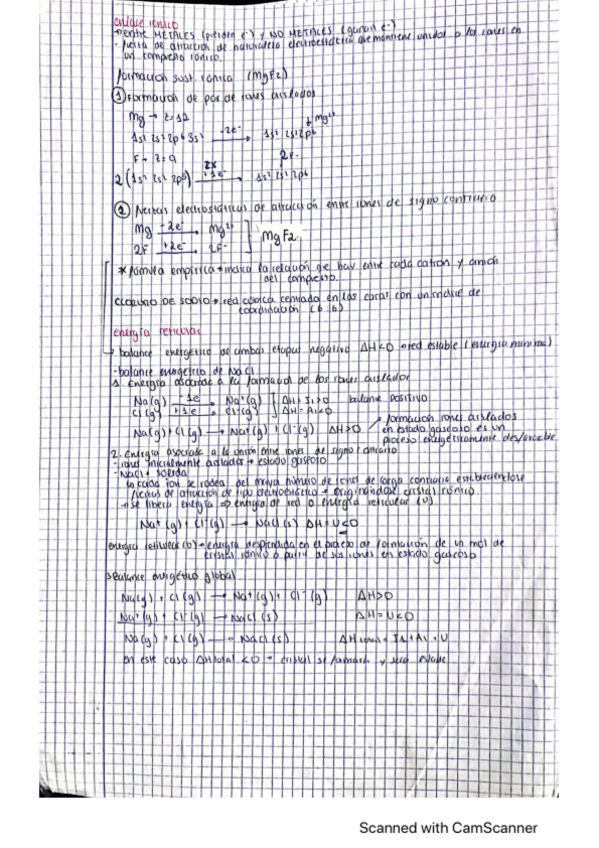 enlace iónico
→ entre METALES (pierden e⁻) y NO METALES (ganan e⁻)
- fuerza de atracción de naturaleza electroestática que mantiene unidos a los iones en
un compuesto iónico.
formación sust. iónica (MgF2)
① Formación de par de iones aislados
Mg → z=12 Mg²⁺
1s² 2s² 2p⁶ 3s² -2e⁻ → 1s² 2s² 2p⁶
F → z=9 2x 2F⁻
2 (1s² 2s² 2p⁵) +1e⁻ → 1s² 2s² 2p⁶
② fuerzas electrostáticas de atracción entre iones de signo contrario
Mg -2e⁻ → Mg²⁺
2F +2e⁻ → 2F⁻ ] MgF2
* fórmula empírica → indica la relación que hay entre cada catión y anión
del compuesto.
CLORURO DE SODIO → red cúbica centrada en las caras con un índice de
coordinación (6:6)
energía reticular
→ balance energético de ambas etapas negativo ΔH<0 → red estable (energía mínima)
- balance energético de NaCl
1. Energía asociada a la formación de los iones aislados
Na(g) -1e → Na⁺(g) ] ΔH = I₁>0 balance POSITIVO
Cl(g) +1e → Cl⁻(g) ] ΔH = A₁<0
→ formación iones aislados
en estado gaseoso es un
Na(g) + Cl(g) → Na⁺(g) + Cl⁻(g) ΔH>0 proceso energéticamente desfavorable
2. Energía asociada a la unión entre iones de signo contrario
- iones inicialmente aislados → estado gaseoso
- NaCl → sólido
↳ cada ion se rodea del mayor número de iones de carga contraria estableciéndose
fuerzas de atracción de tipo electrostático → originándose cristal iónico
→ se libera energía ⇒ energía de red o energía reticular (U)
Na⁺(g) + Cl⁻(g) → NaCl(s) ΔH = U<0
energía reticular (U) → energía desprendida en el proceso de formación de un mol de
cristal iónico a partir de sus iones en estado gaseoso
3. Balance energético global
Na(g) + Cl(g) → Na⁺(g) + Cl⁻(g) ΔH>0
Na⁺(g) + Cl⁻(g) → NaCl(s) ΔH = U<0
Na(g) + Cl(g) → NaCl(s) ΔH total = I₁ + A₁ + U
en este caso ΔH total <0 → cristal se formará y será estable
Scanned with CamScanner